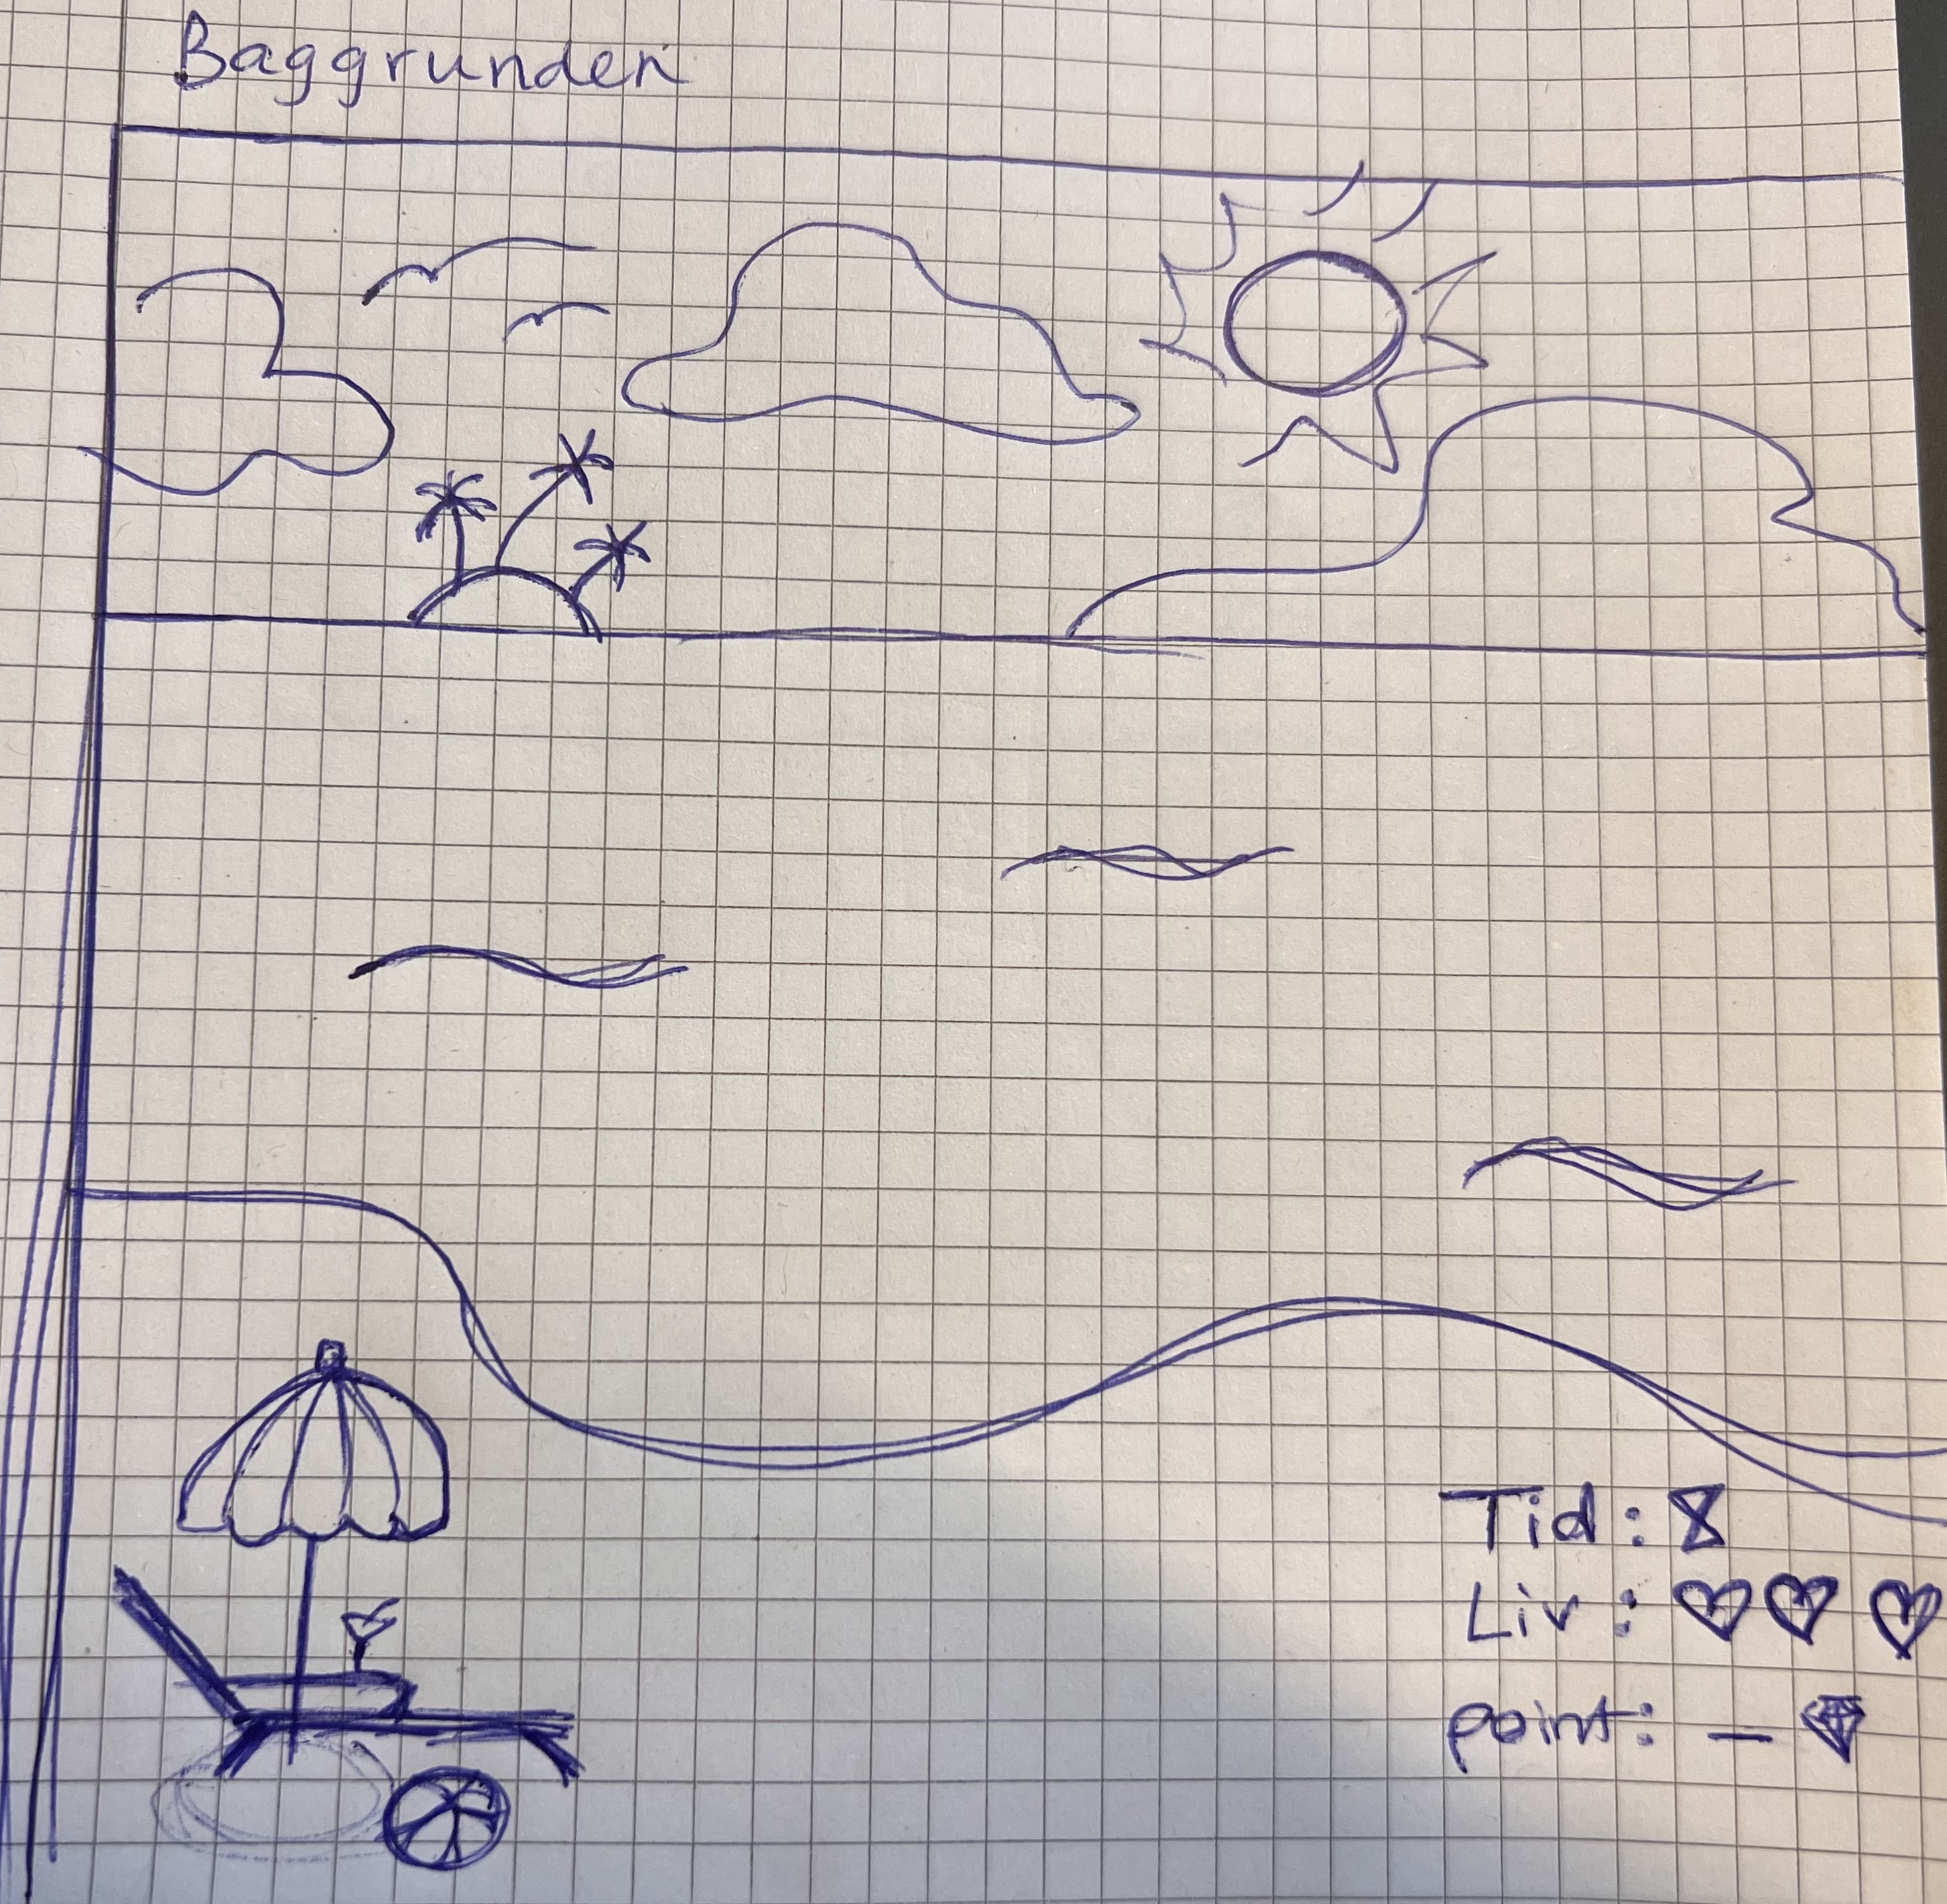 Baggrunden
Tid:
Liv:
point: –